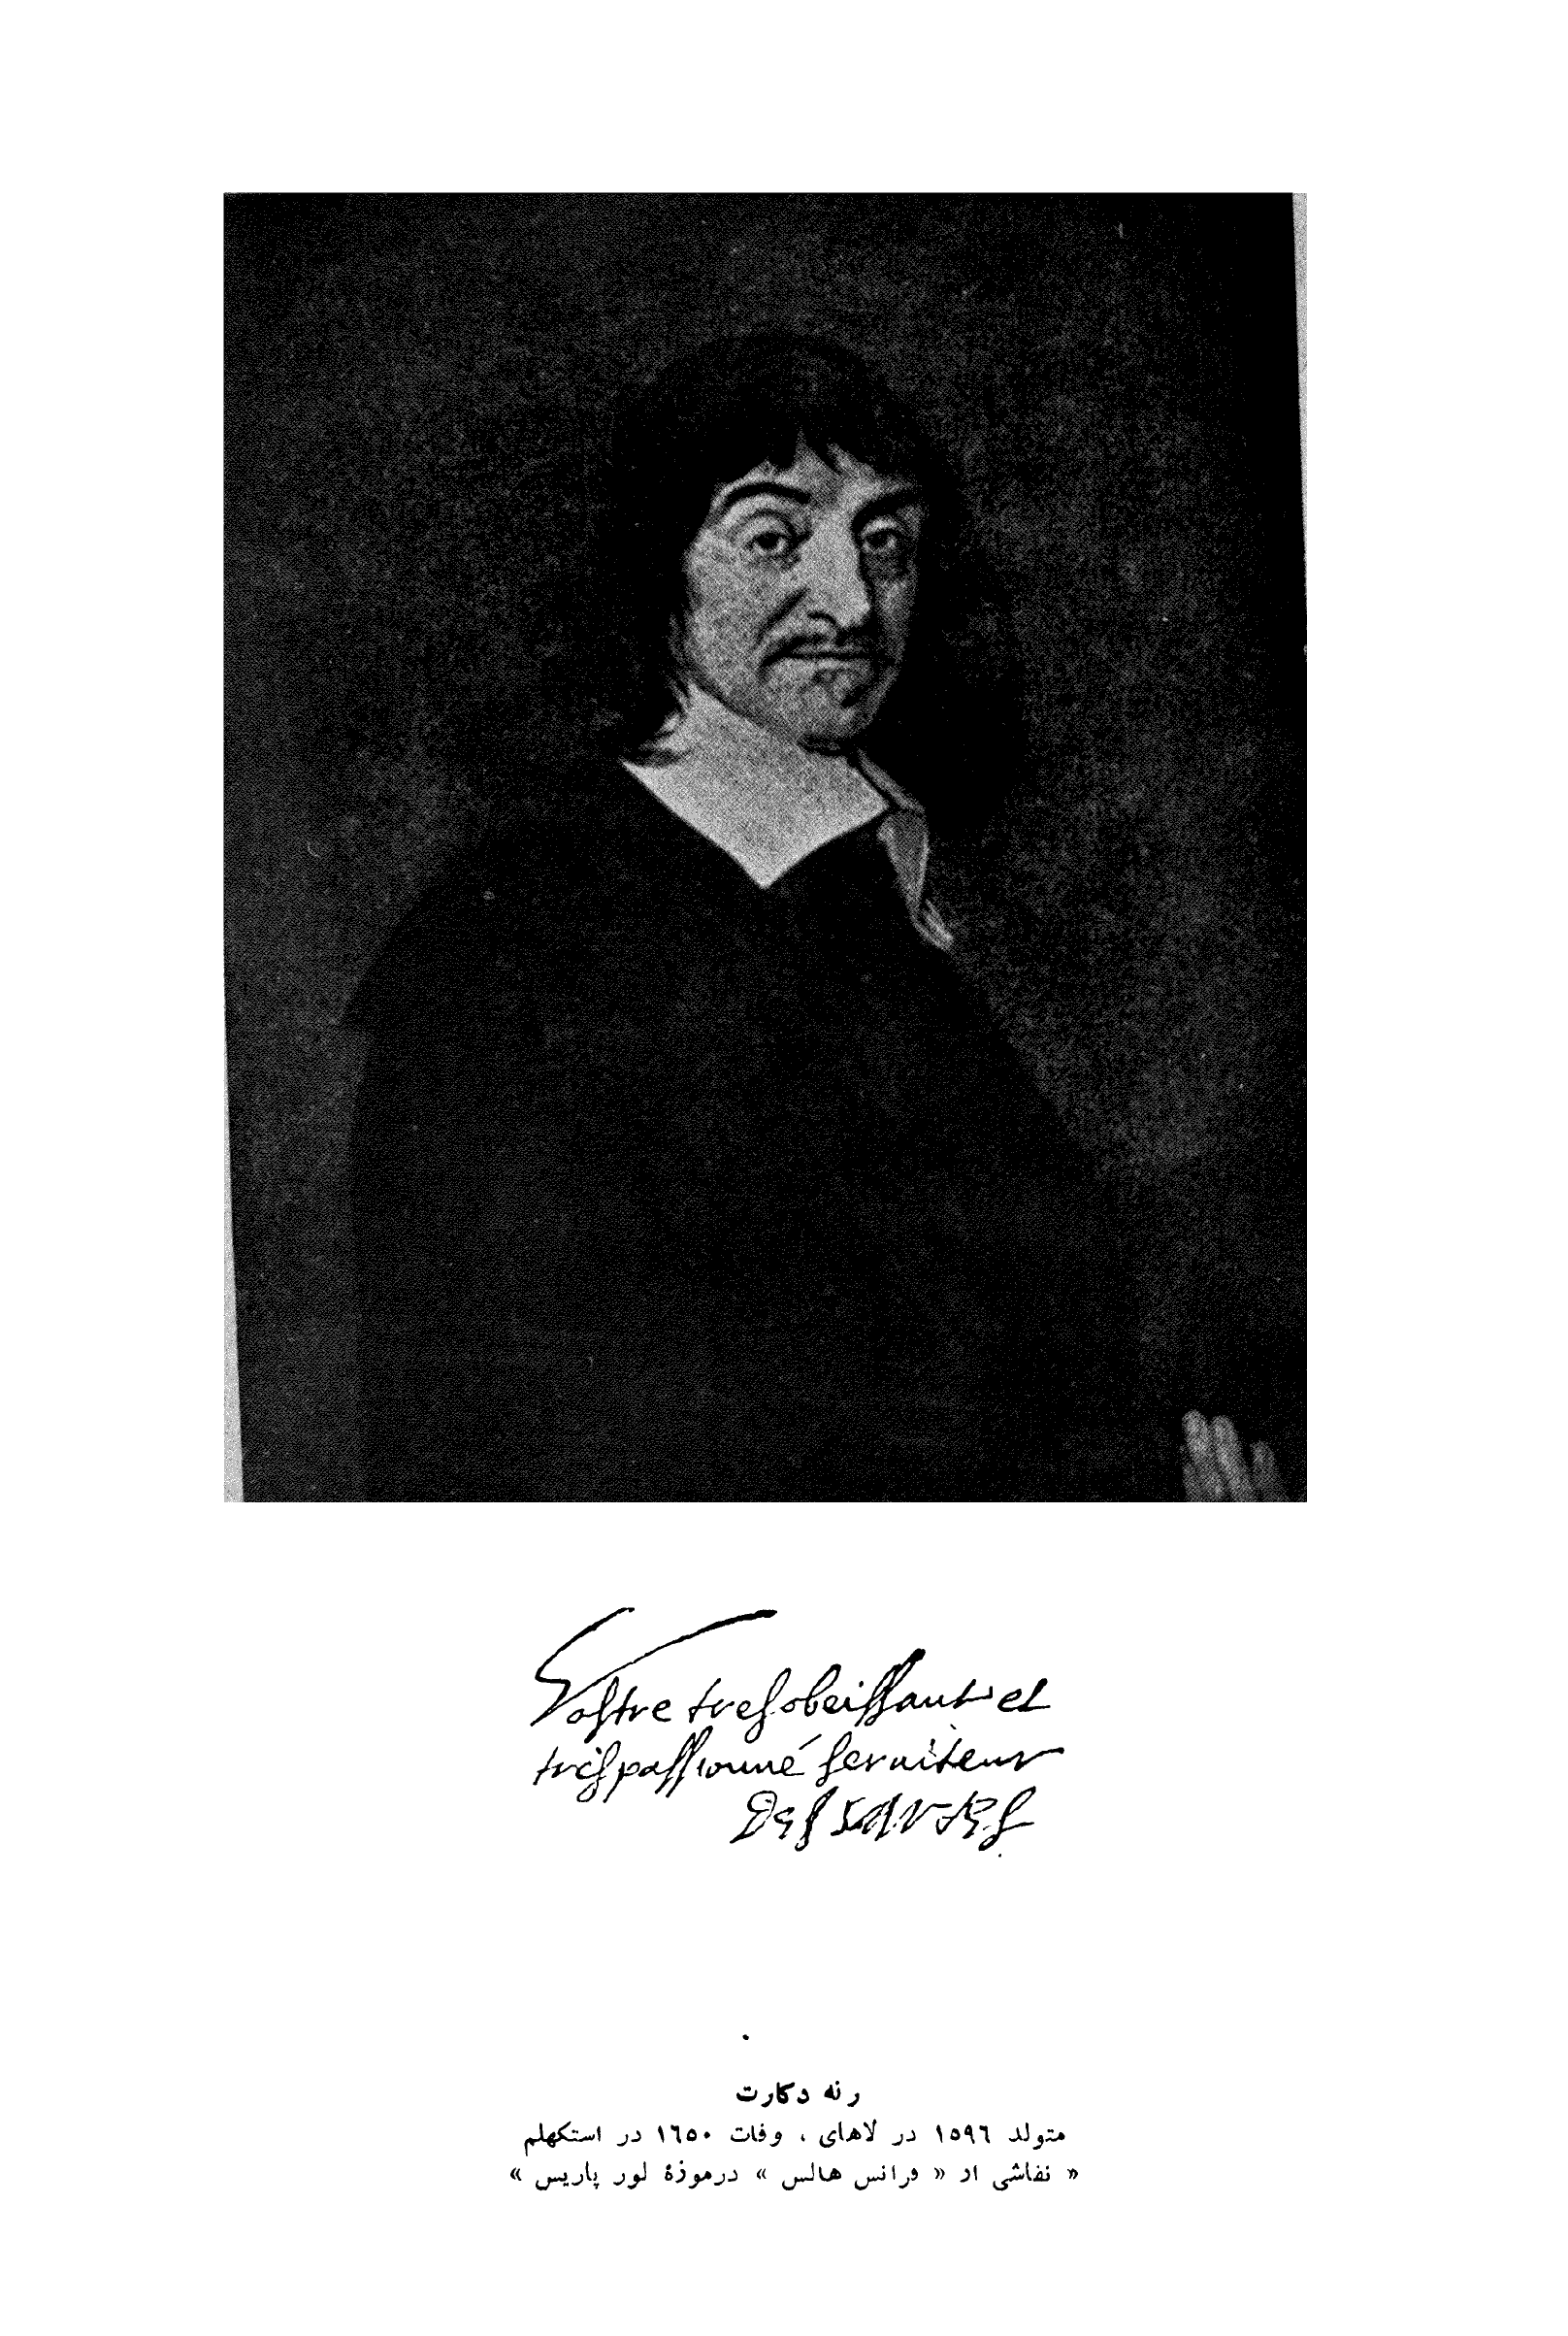 Vostre tresobeissant et
trespassionné seruiteur
Descartes
رنه دکارت
متولد ١٥٩٦ در لاهای ، وفات ١٦٥٠ در استکهلم
« نقاشی از « فرانس هالس » درموزهٔ لور پاریس »